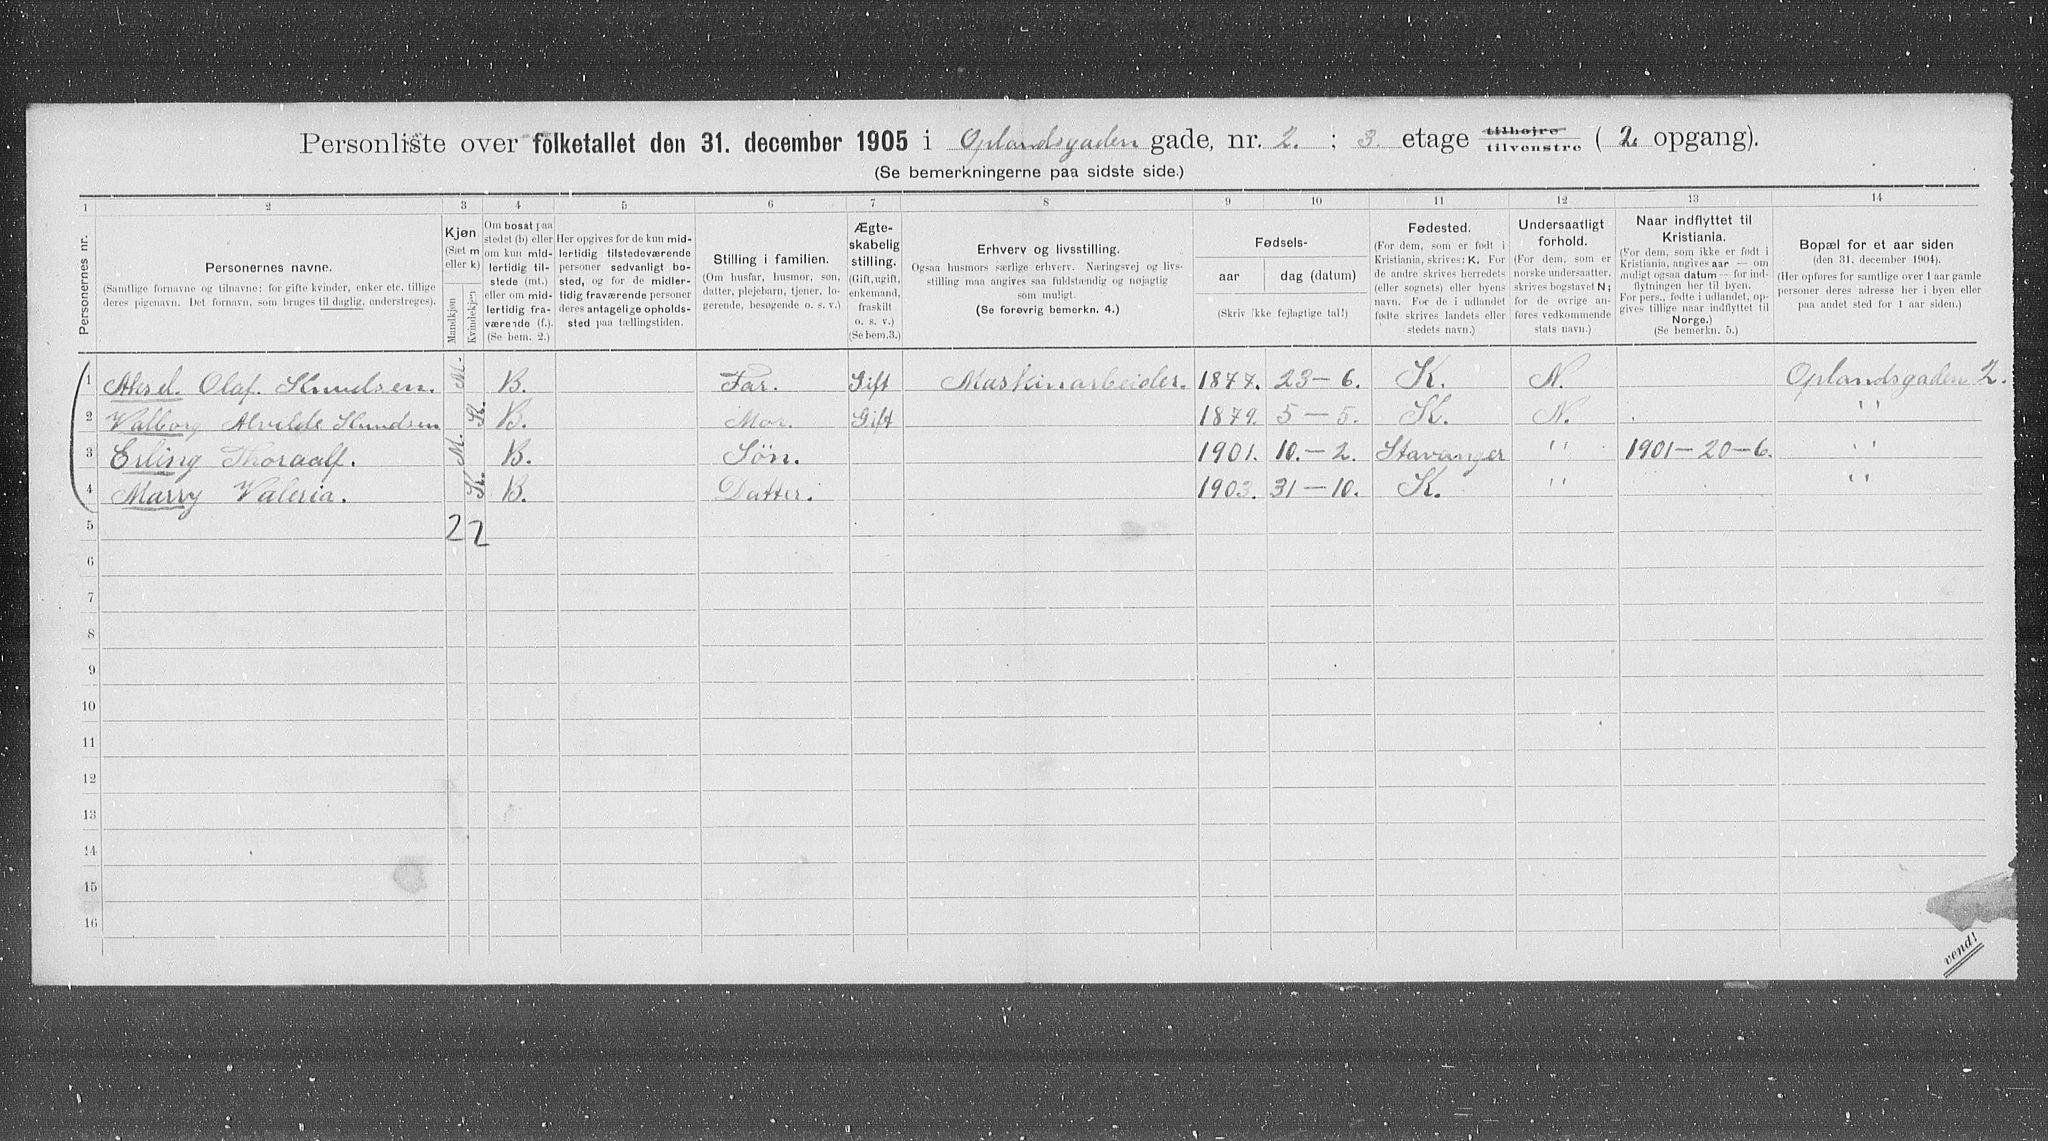 Personliste over folketallet den 31. december 1905 i Oplandsgaden gade, nr. 2. ; 3. etage tilhøjre tilvenstre ( 2. opgang).
(Se bemerkningerne paa sidste side.)
1 2 3 4 5 6 7 8 9 10 11 12 13 14
Personernes nr.
Personernes navne.
(Samtlige fornavne og tilnavne; for gifte kvinder, enker etc. tillige
deres pigenavn. Det fornavn, som bruges til daglig, understreges).
Kjøn
(Sæt m
eller k)
Mandkjøn
Kvindekjøn
Om bosat paa
stedet (b) eller
om kun mid-
lertidig til-
stede (mt.)
eller om mid-
lertidig fra-
værende (f.).
(Se bem. 2.)
Her opgives for de kun mid-
lertidig tilstedeværende
personer sedvanligt bo-
sted, og for de midler-
tidig fraværende personer
deres antagelige opholds-
sted paa tællingstiden.
Stilling i familien.
(Om husfar, husmor, søn,
datter, plejebarn, tjener, lo-
gerende, besøgende o. s. v.)
Ægte-
skabelig
stilling.
(Gift, ugift,
enkemand,
fraskilt
o. s. v.)
(Se bem.3.)
Erhverv og livsstilling.
Ogsaa husmors særlige erhverv. Næringsvej og livs-
stilling maa angives saa fuldstændig og nøjagtig
som muligt.
(Se forøvrig bemerkn. 4.)
Fødsels-
aar
dag (datum)
(Skriv ikke fejlagtige tal!)
Fødested.
(For dem, som er født i
Kristiania, skrives: K. For
de andre skrives herredets
(eller sognets) eller byens
navn. For de i udlandet
fødte skrives landets eller
stedets navn.)
Undersaatligt
forhold.
(For dem, som er
norske undersaatter,
skrives bogstavet N;
for de øvrige an-
føres vedkommende
stats navn.)
Naar indflyttet til
Kristiania.
(For dem, som ikke er født i
Kristiania, angives aar — om
muligt ogsaa datum — for ind-
flytningen her til byen.
For pers., fødte i udlandet, op-
gives tillige naar indflyttet til
Norge.)
(Se bemerkn. 5.)
Bopæl for et aar siden
(den 31. december 1904).
(Her opføres for samtlige over 1 aar gamle
personer deres adresse her i byen eller
paa andet sted for 1 aar siden.)
1 Aksel Olaf Knudsen. M. B. Far. Gift Maskinarbeider. 1877. 23–6. K. N. Oplandsgaden 2.
2 Valborg Alvilde Knudsen K. B. Mor. Gift 1879. 5–5. K. N. "
3 Erling Thoraalf. M. B. Søn. 1901. 10.–2. Stavanger " 1901–20–6. "
4 Marry Valeria. K. B. Datter. 1903. 31–10. K. " "
5 2 2
6
7
8
9
10
11
12
13
14
15
16
vend!